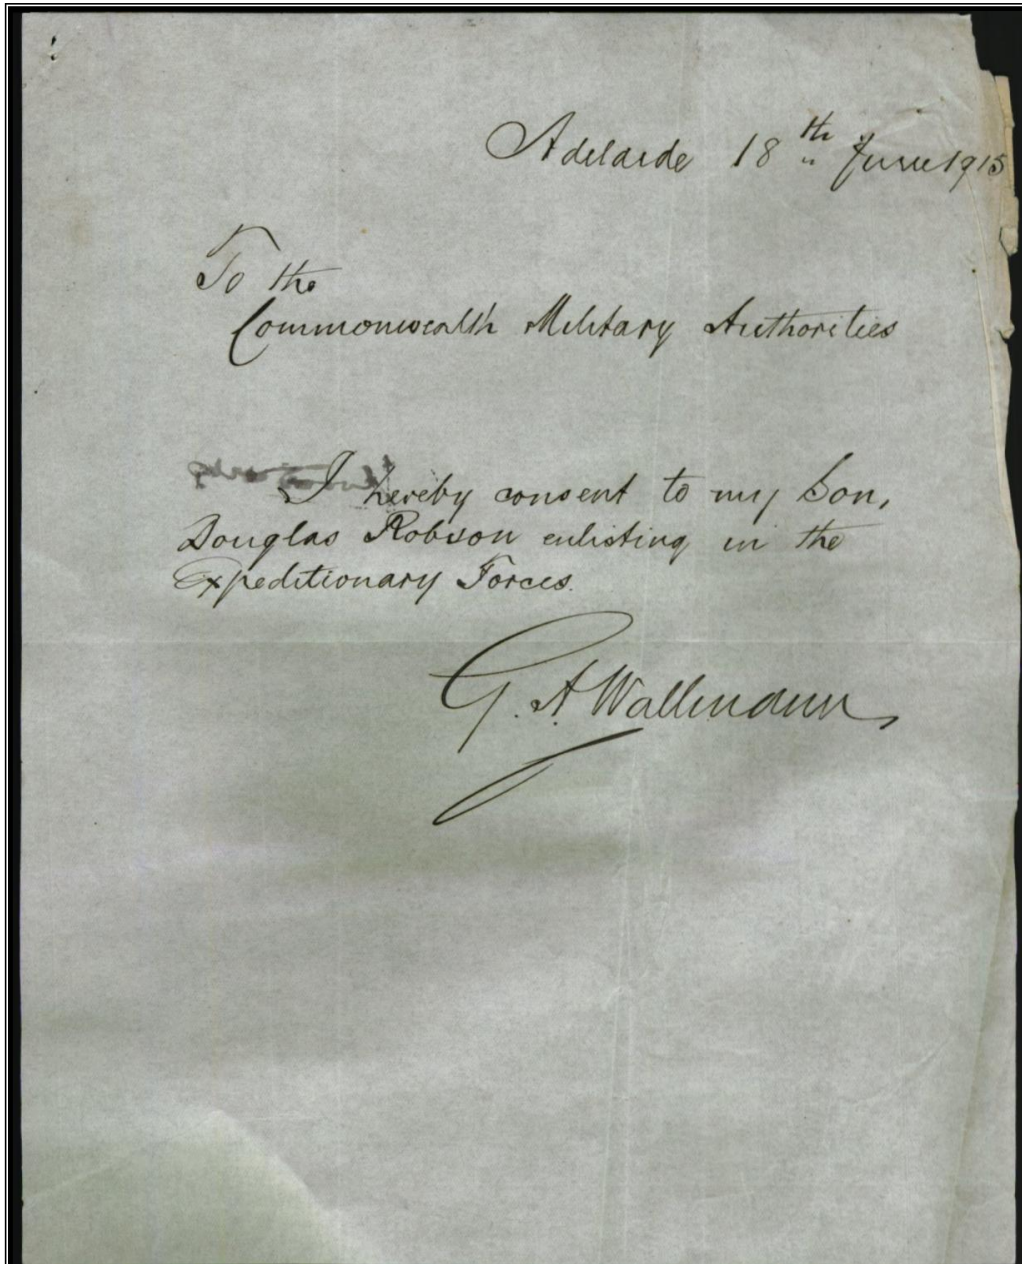 Adelaide 18th June 1915
To the
Commonwealth Military Authorities
I hereby consent to my Son,
Douglas Robson enlisting in the
Expeditionary Forces.
G. A. Wallmann